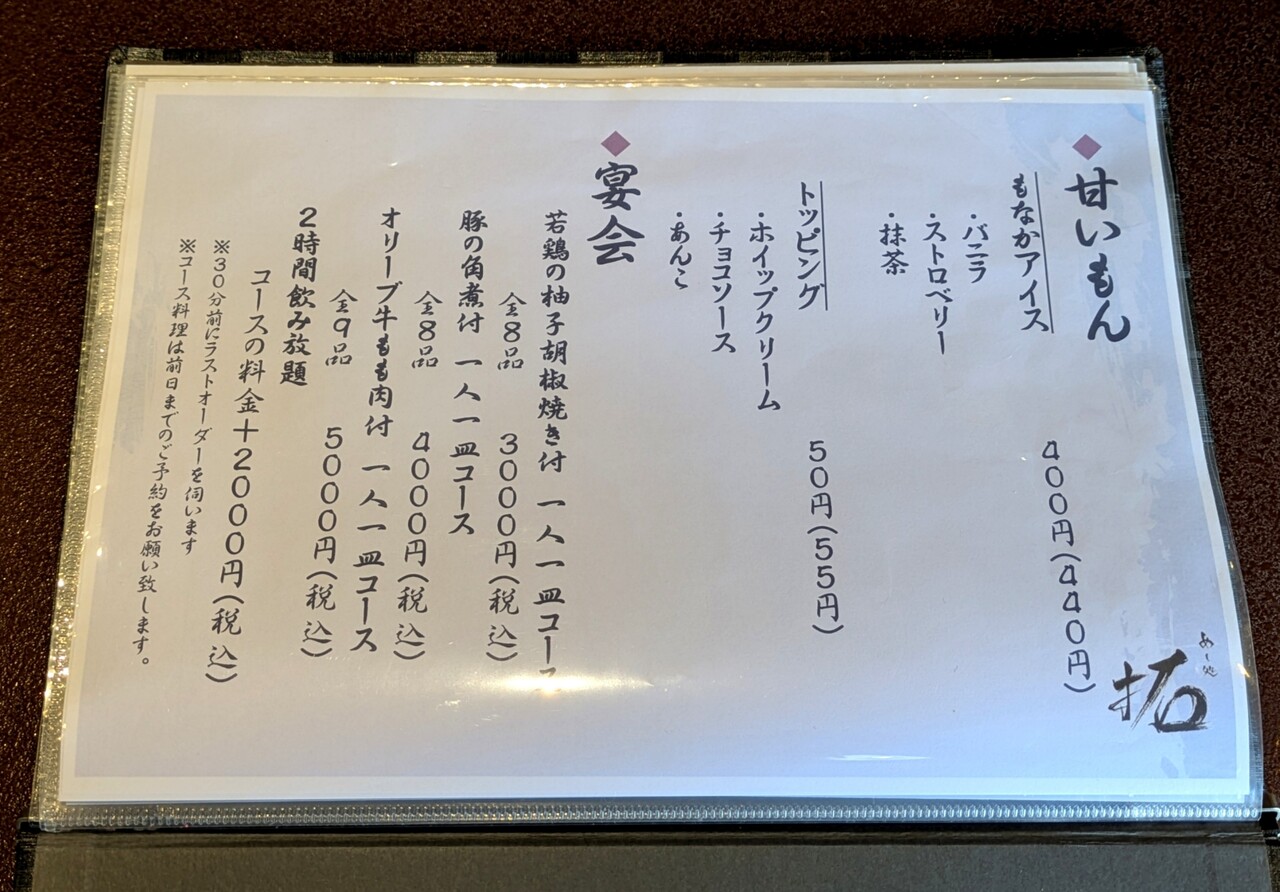 ◆甘いもん
もなかアイス 400円(440円)
・バニラ
・ストロベリー
・抹茶
トッピング 50円(55円)
・ホイップクリーム
・チョコソース
・あんこ
◆宴会
若鶏の柚子胡椒焼き付 一人一皿コース
全8品 3000円(税込)
豚の角煮付 一人一皿コース
全8品 4000円(税込)
オリーブ牛もも肉付 一人一皿コース
全9品 5000円(税込)
2時間飲み放題
コースの料金+2000円(税込)
※30分前にラストオーダーを伺います
※コース料理は前日までのご予約をお願い致します。
めし処
拓